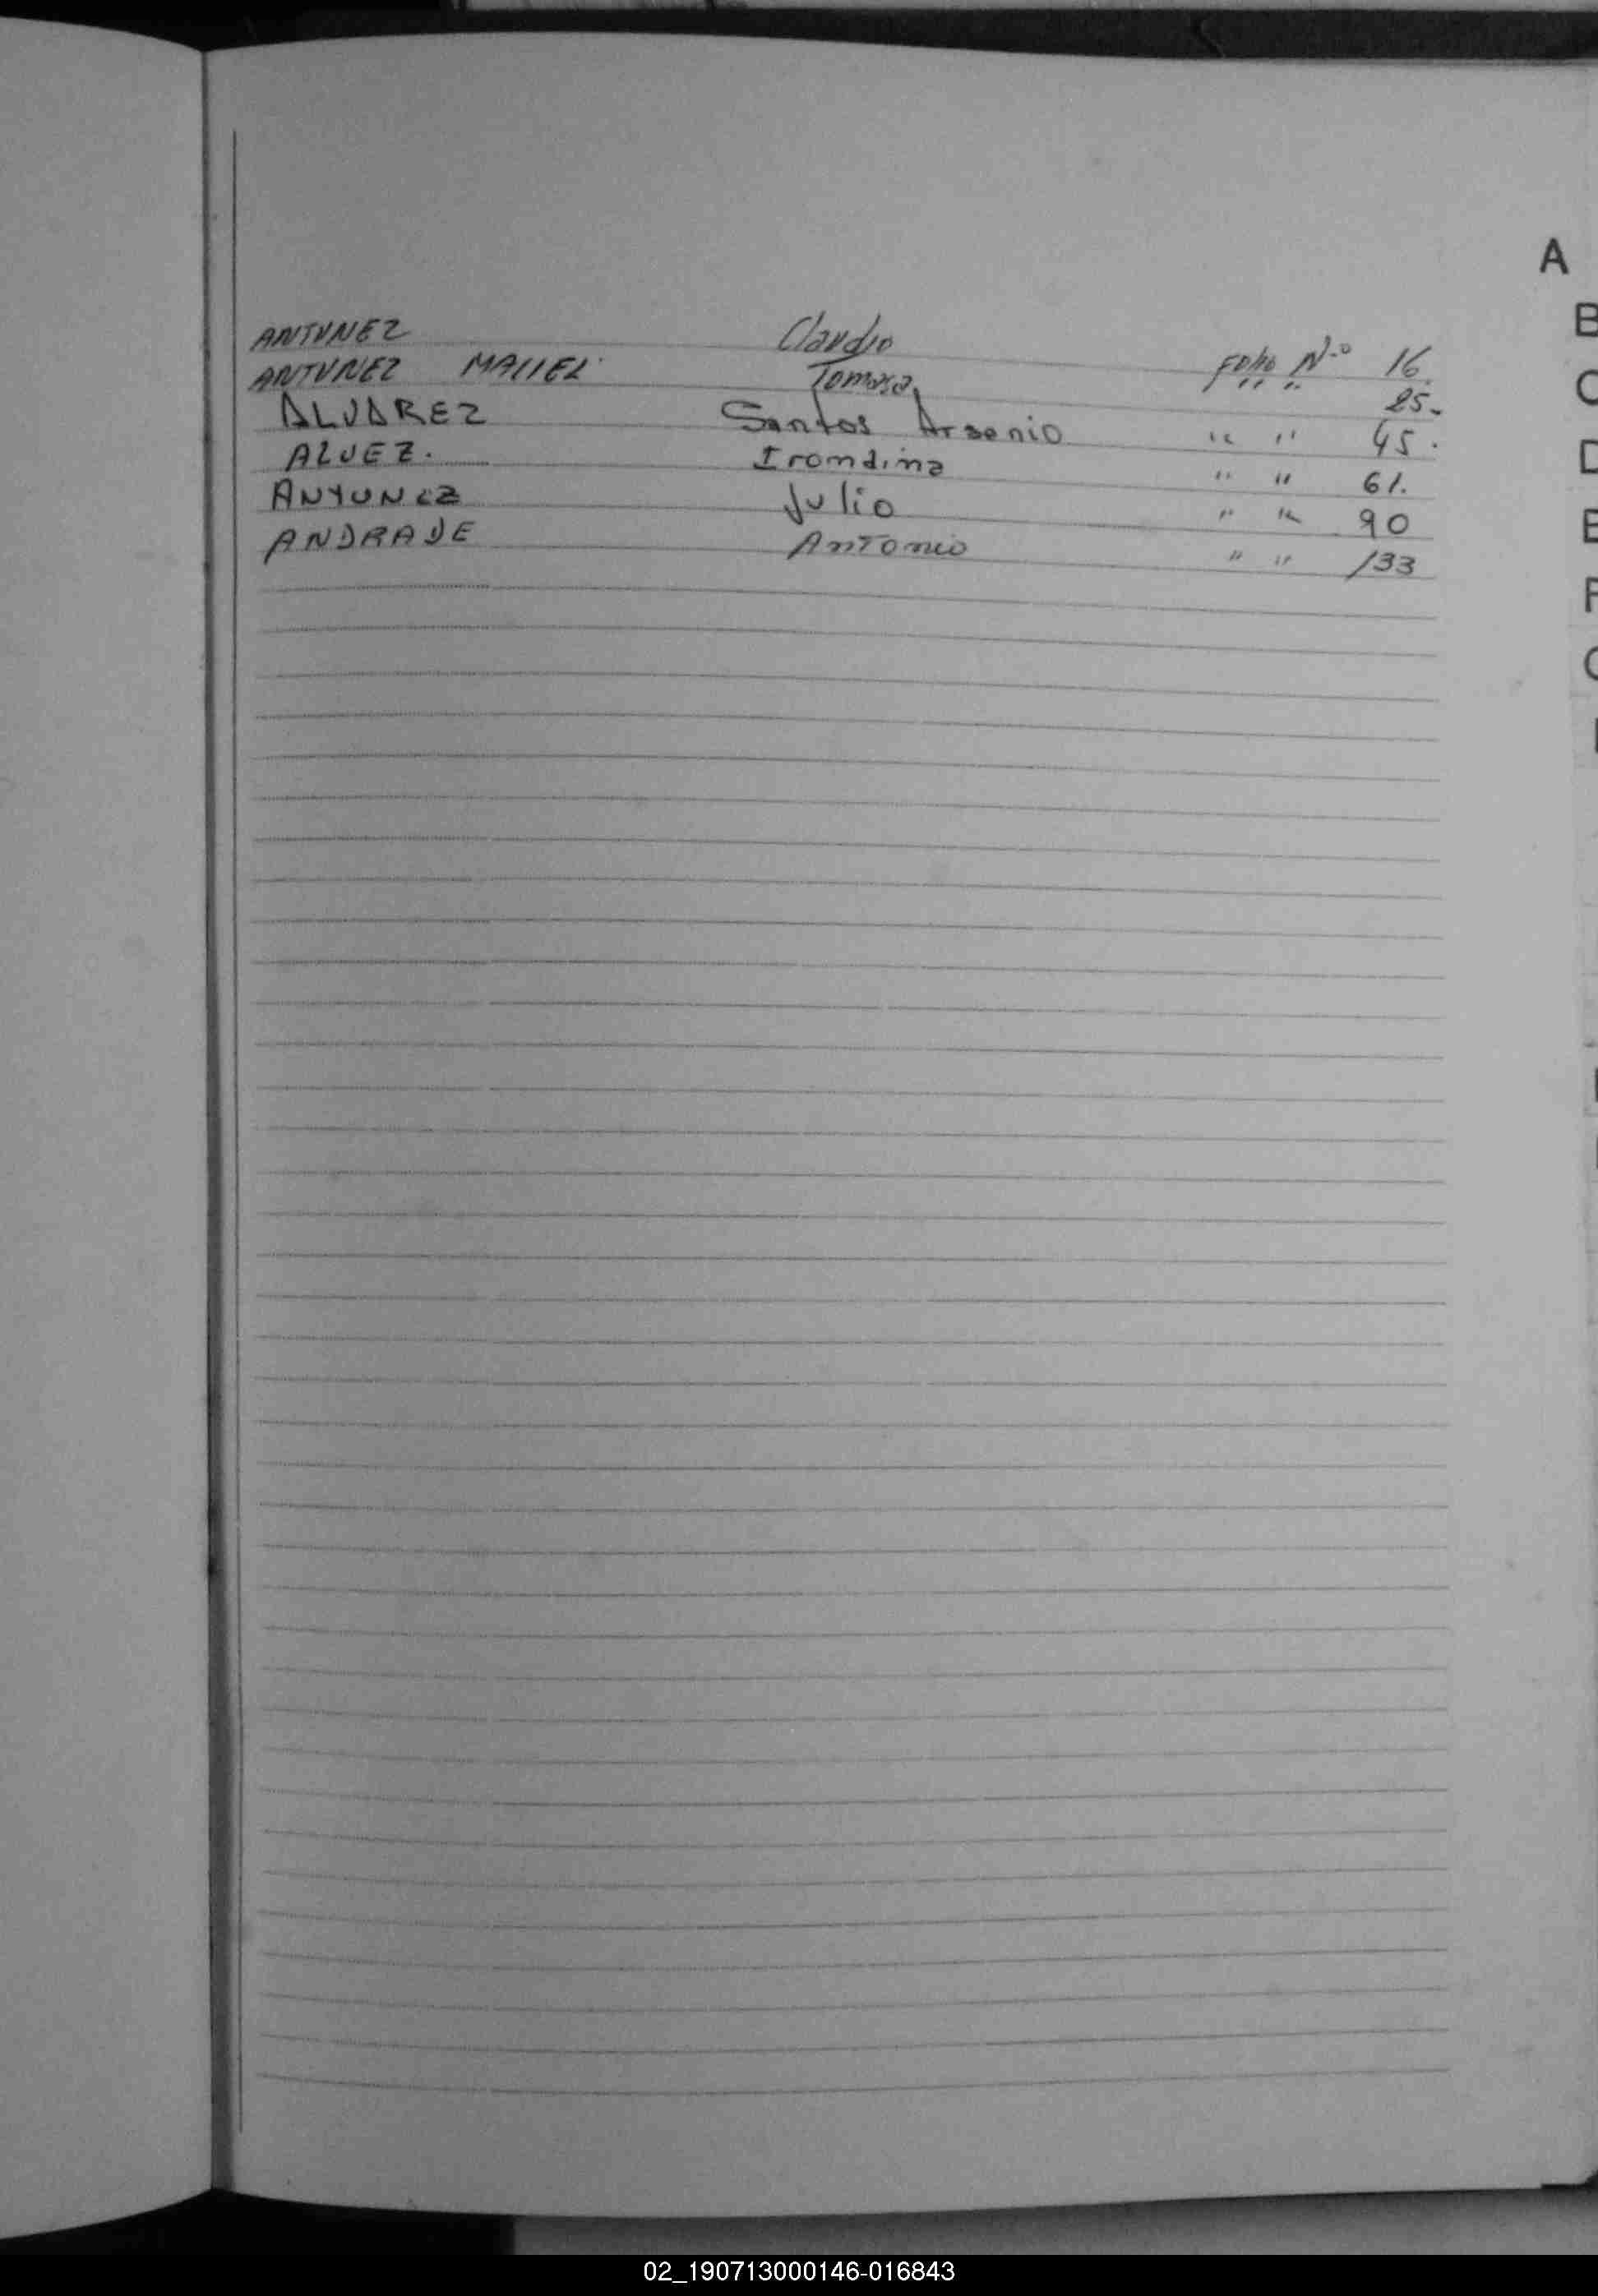 A
B
C
D
E
F
ANTUNEZ Claudio Folio N-o 16.
ANTUNEZ MACIEL Tomasa " " 25.
ALVAREZ Santos Arsenio " " 45.
ALVEZ. Iromdina " " 61.
ANTUNEZ Julio " " 90
ANDRADE ANTONIO " " 133
02_190713000146-016843